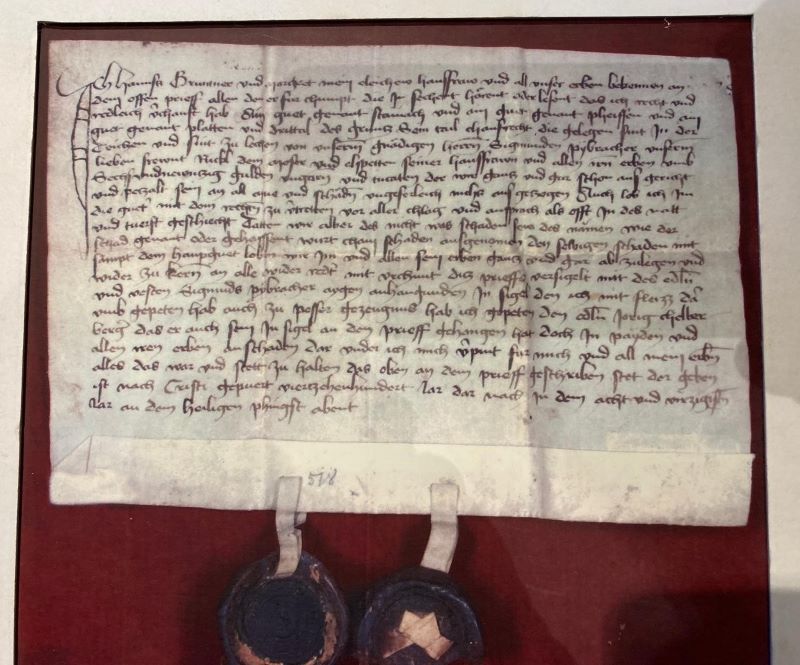 Ich Hanns Gruntner und margret mein eleichew hausfraw und all unser erben bekennen an
dem offen prieff allen den er für chumpt die In sechent hörent oder lesent das ich recht und
redleich v̈chauft hab Mein guet genant stainach und am guet genant pheissen und am
guet genant platten und drittal des gruntz Sein tail chaufrecht die gelegen sint In der
Teichen und sint zu lechen von unserm gnädigen herrn Sigmunden pybracher unserm
lieben frewnt Nickl dem moser und elspetten seiner hausfrawn und allen irn erben umb
Sechs und newnzig gulden ungarn und tucaten der wir gantz und gar schon aus gericht
und petzalt sein an all abge und schädn ungeferleich nichts ausgetzogen Auch lob ich im
die guet mit dem rechtn zu v̈tretten vor aller chlag und ansprach als offt In des natt
und tuerft geschiecht Tätten wir alber des nicht was schaden sew des nämen wie der
schad genant oder gehaissent wurt chain schaden ausgenomen den selbigen schaden mit
sampt dem haupguet loben wir im und allen sein erben gantz und gar ab zulegen und
wider zu kern an alle wider redt mit urchunt ditz prieffs versigelt mit des edln̄
und vesten Sigmunds pybracher aygen anhangunden In sigel den ich mit fleizz dar
umb gepeten hab auch zu pesser gezeugnuss hab ich gepeten den edln̄ Jorig chelber
berg das er auch sein In sigel an den prieff gehangen hat doch In payden und
allen iren erben an schaden dar under ich mich v̈pint für mich und all mein erbn̄
alles das war und stett zu halten das oben an dem prieff geschriben stet der geben
ist nach Cristi gepuert viertzehenhundert Iar dar nach in dem acht und virzigistn̄
Iar an dem heiligen phingst abent
518